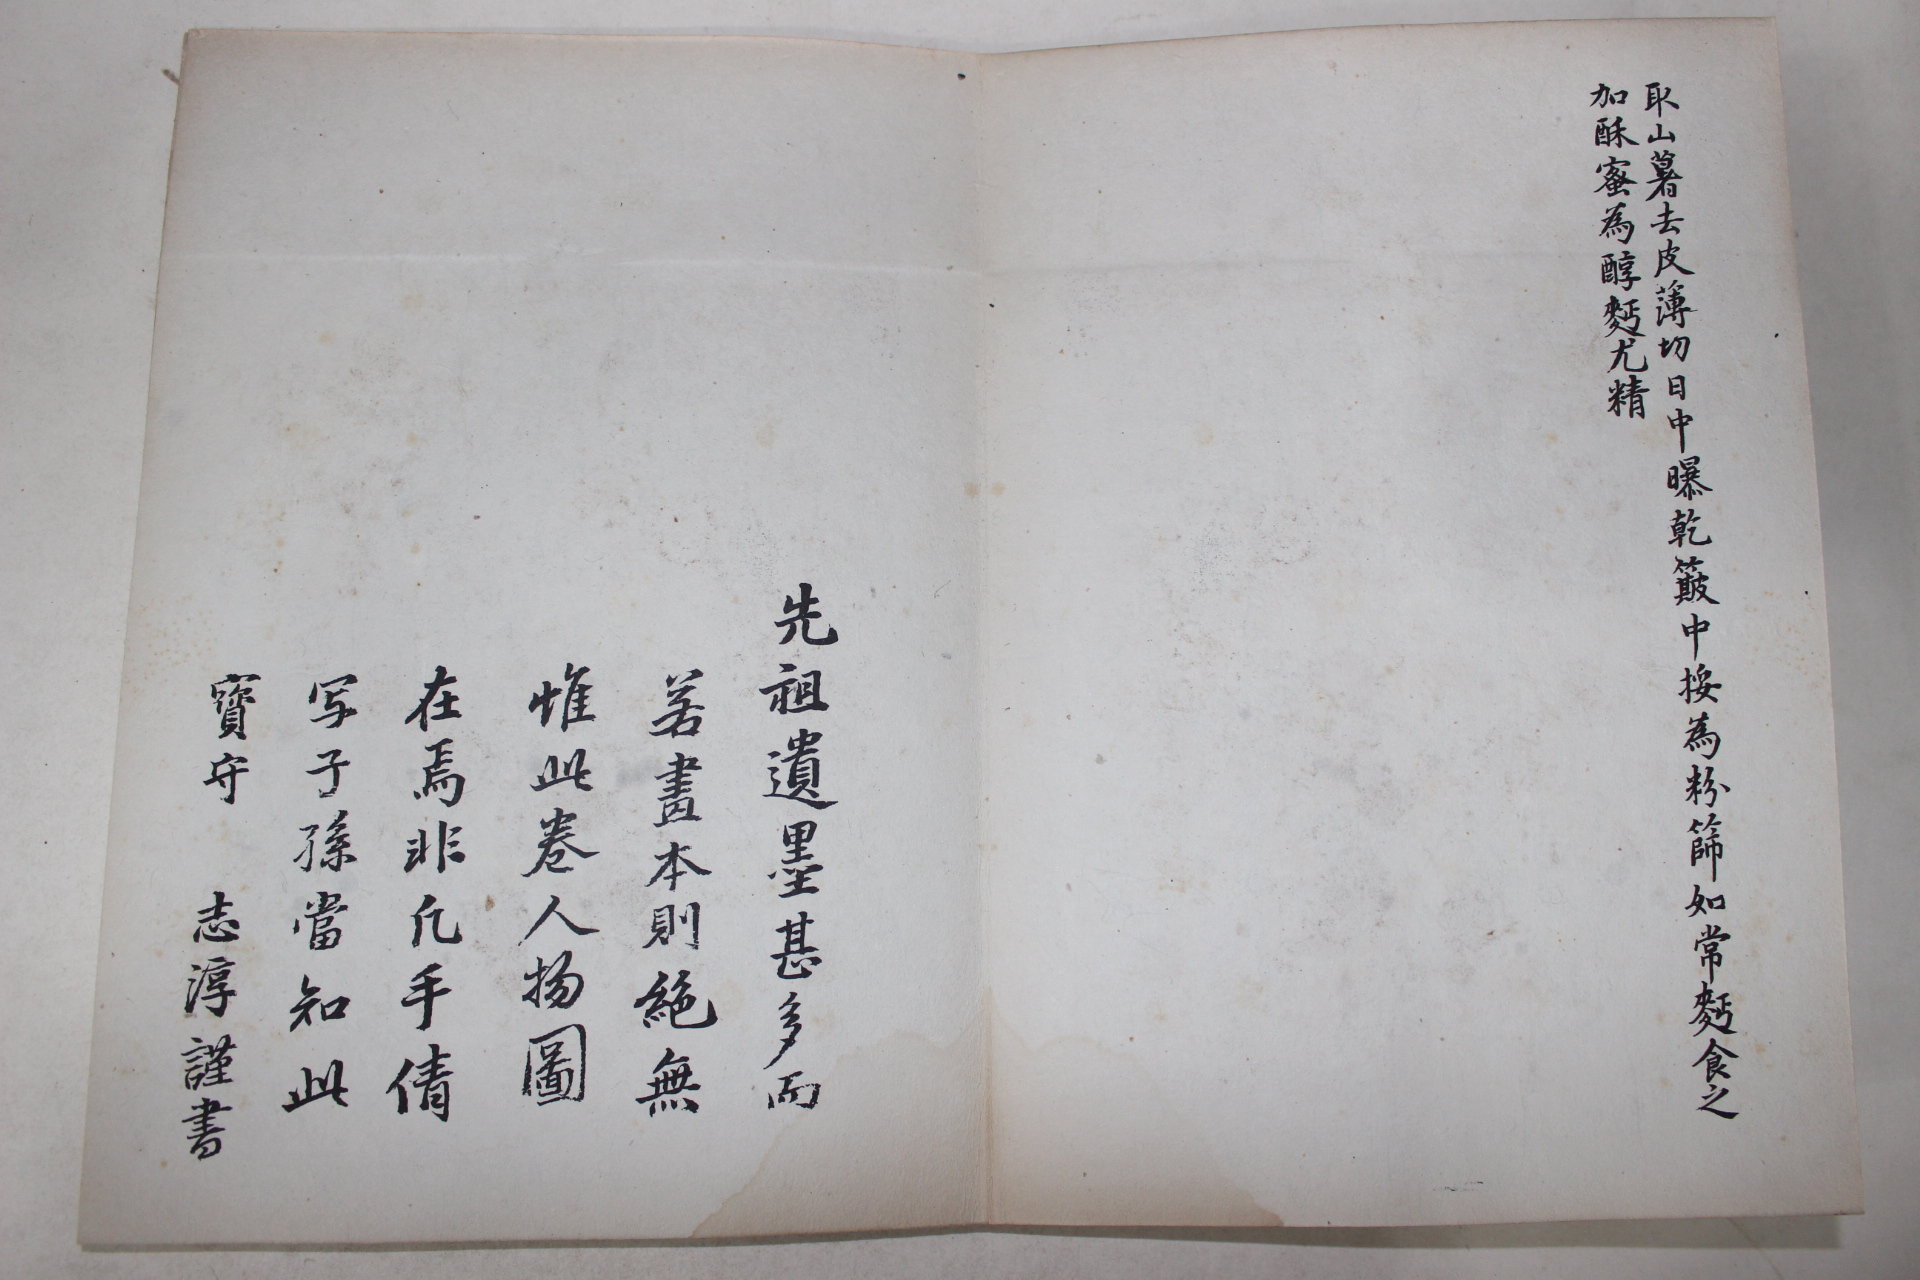 取山薯去皮薄切日中曝乾簸中挼為粉篩如常麫食之
加酥蜜為醇麫尤精
先祖遺墨甚多而
若畫本則絕無
惟此卷人物圖
在焉非凡手倩
写子孫當知此
寶守 志淳謹書